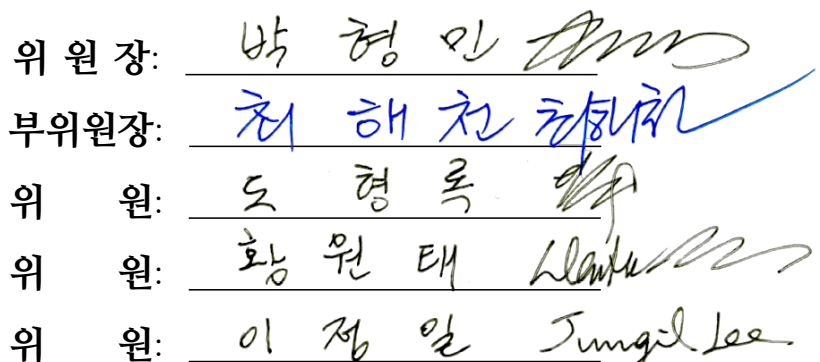 위 원 장: 박 형 민
부위원장: 최 해 천 최해천
위 원: 도 형 록
위 원: 황 원 태
위 원: 이 정 일 Jungil Lee